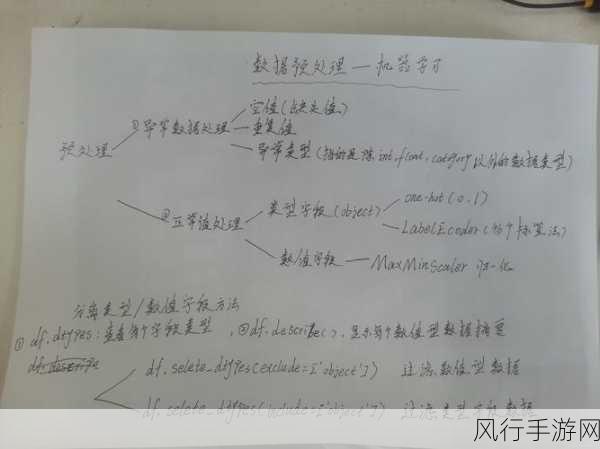 数据预处理—机器学习
空值(缺失值)
①异常数据处理 重复值
预处理
异常类型(指的是除int,float,category以外的数据类型)
②正常值处理 类型字段(object) one-hot(0,1)
LabelEcoder(
数值字段 — MaxMinScaler 归一化
分离类型/数值字段方法
① df.dtypes:查看每个字段类型 ,②df.describe(),显示每个数值型数据摘要
df.describe
df.selete_dtypes(exclude=['object']) 过滤数值型数据
df.selete_dtypes(include=['object']) 过滤类型字段数据
风行手游网